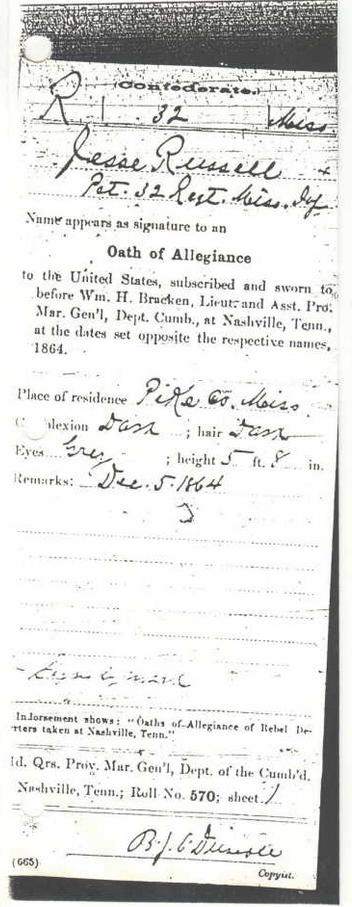 Confederate.
R | 32 | Miss
Jesse Russell +
Pvt. 32 Regt. Miss. Inf.
Name appears as signature to an
Oath of Allegiance
to the United States, subscribed and sworn to
before Wm. H. Bracken, Lieut. and Asst. Pro.
Mar. Gen'l, Dept. Cumb., at Nashville, Tenn.,
at the dates set opposite the respective names,
1864.
Place of residence Pike Co. Miss.
C plexion Dark ; hair Dark
Eyes Grey ; height 5 ft. 8 in.
Remarks: Dec. 5. 1864
Indorsement shows: "Oaths of Allegiance of Rebel De-
rters taken at Nashville, Tenn."
Id. Qrs. Prov. Mar. Gen'l, Dept. of the Cumb'd.
Nashville, Tenn.; Roll No. 570; sheet 1
(665) Copyist.